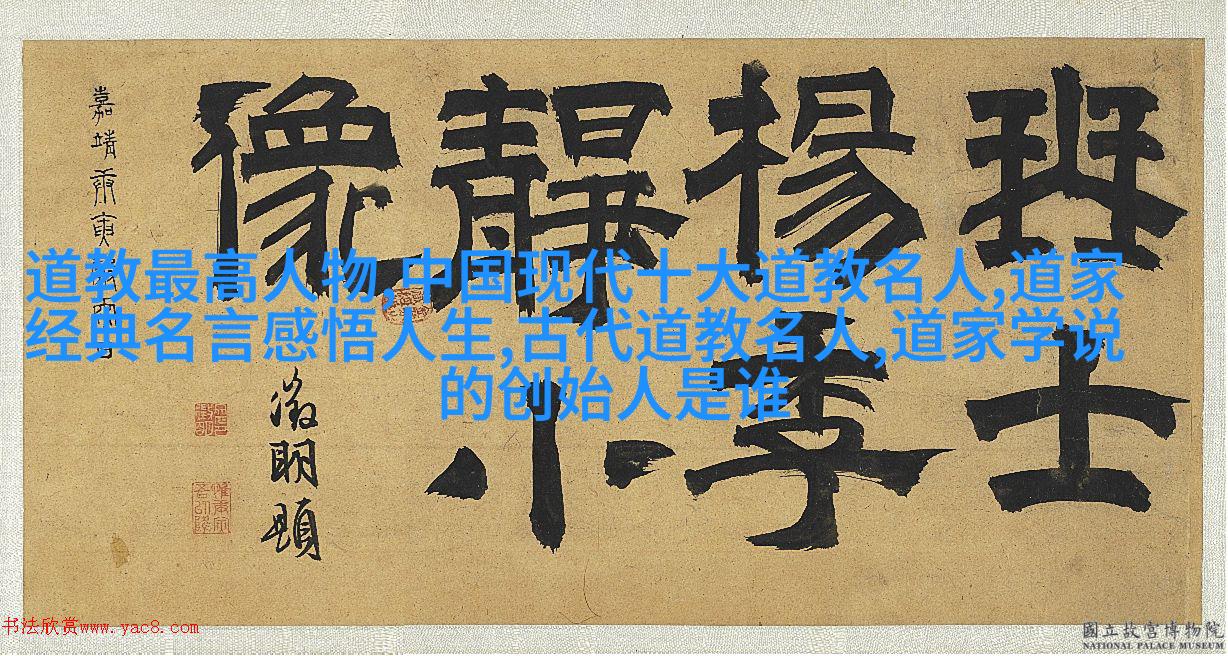 班士
楊季
靜小
像
嘉靖庚寅
徵明題
道教最高人物,中国现代十大道教名人,道家
经典名言感悟人生,古代道教名人,道家学说
的创始人是谁
书法欣赏www.yac8.com
國立故宮博物院
NATIONAL PALACE MUSEUM